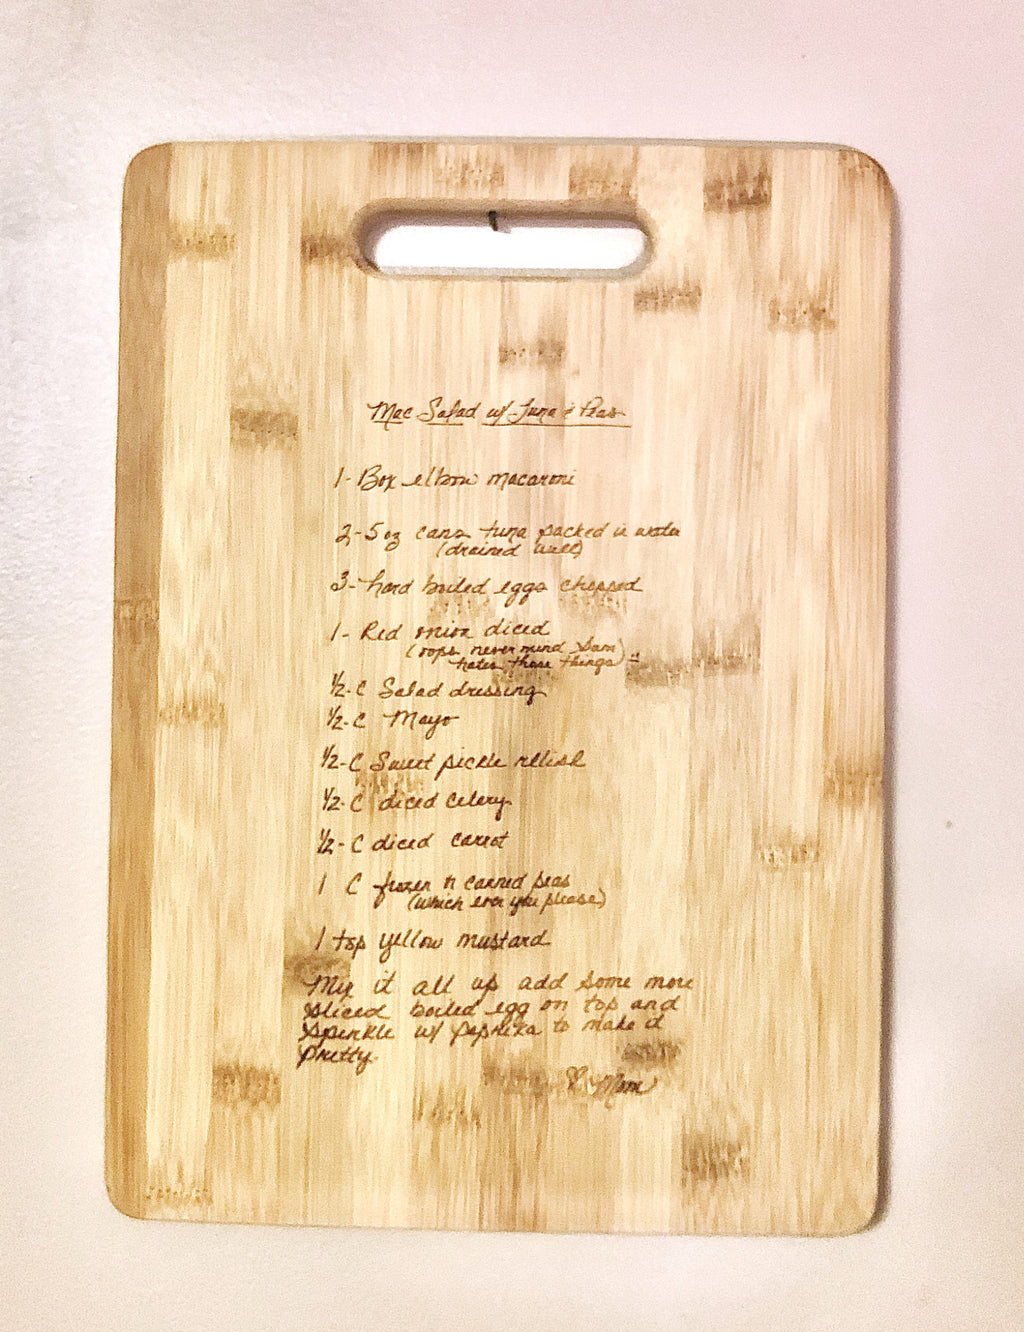 Mac Salad w/ Tuna & Peas
1- Box elbow macaroni
2- 5 oz cans tuna packed in water
(drained well)
3- hard boiled eggs chopped
1- Red onion diced
(oops never mind Sam
hates those things) :)
1/2- C Salad dressing
1/2- C Mayo
1/2- C Sweet pickle relish
1/2- C diced celery
1/2- C diced carrot
1 C frozen or canned peas
(which ever you please)
1 tsp yellow mustard
Mix it all up add some more
sliced boiled egg on top and
sprinkle w/ paprika to make it
pretty.
♡ Mom